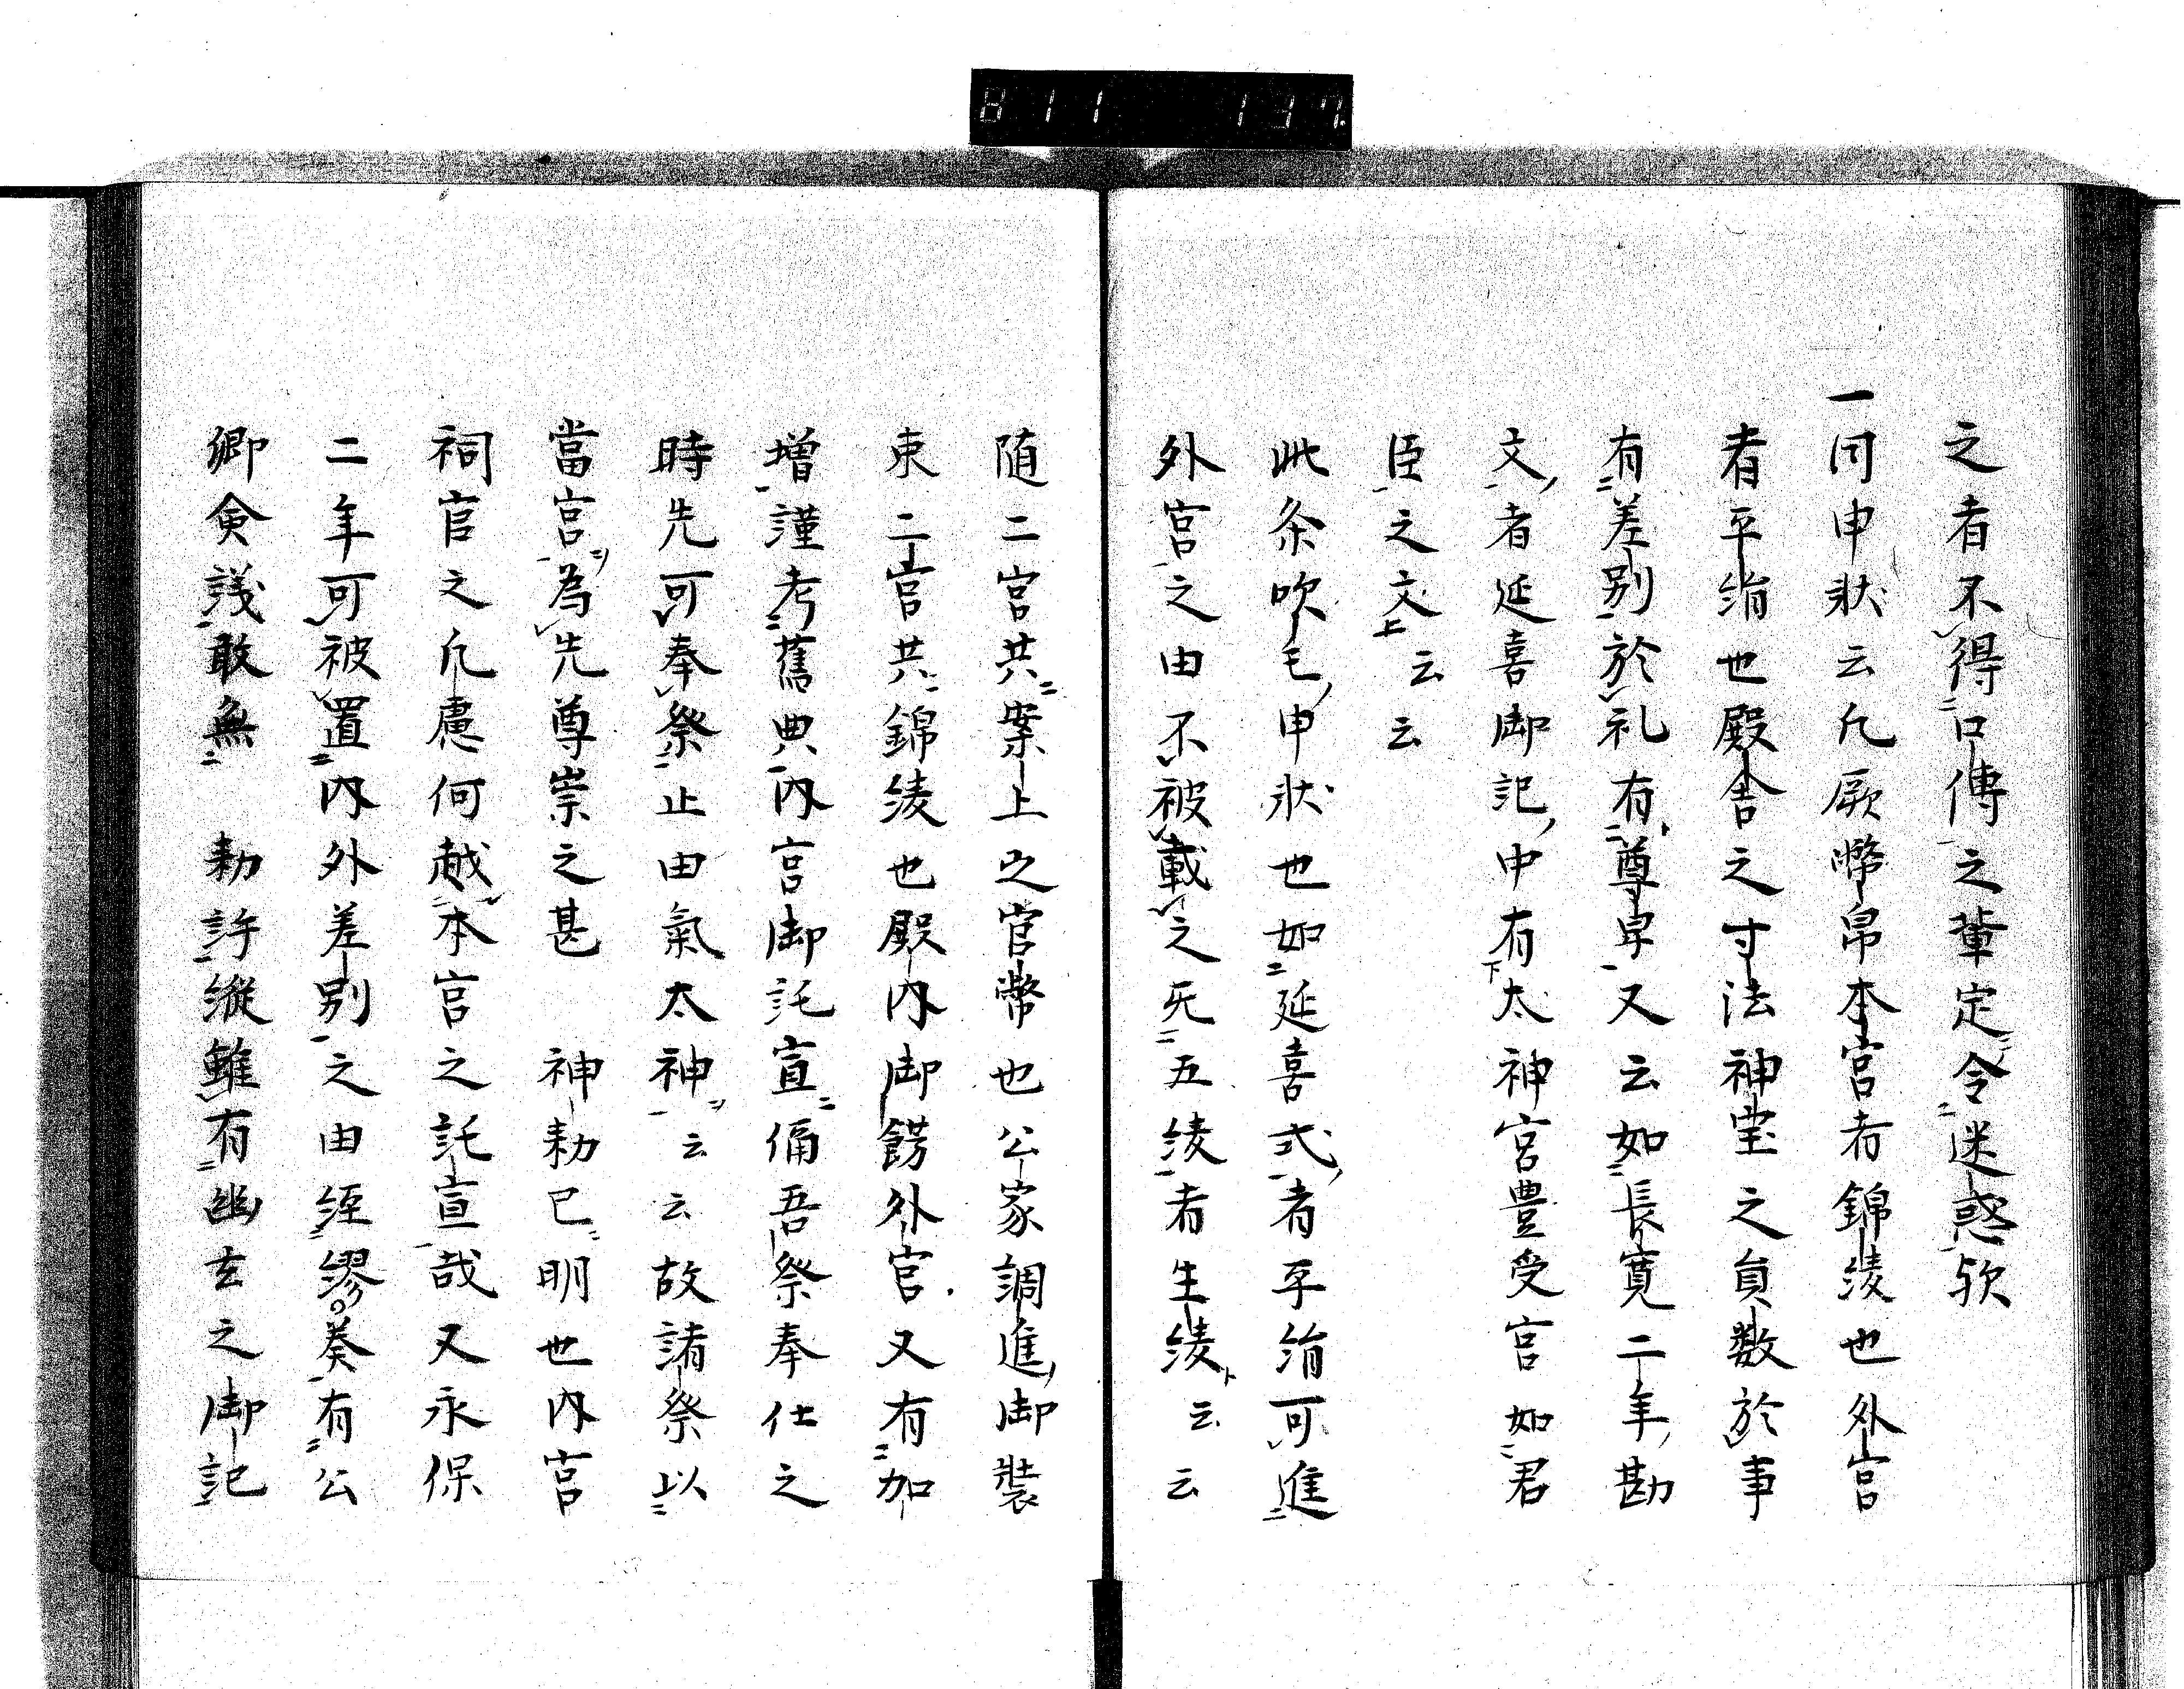 811 137
之者不得口傳之輩定令迷惑欤
一同申状云凢厥幣帛本宮者錦綾也外宮
者平絹也殿舎之寸法神宝之員数於事
有差別於礼有尊卑又云如長寛二年勘
文者延喜御記中有太神宮豊受宮如君
臣之文云云
此条吹毛申状也如延喜式者平絹可進
外宮之由不被載之死五綾者生綾云云
随二宮共案上之官幣也公家調進御装
束二宮共錦綾也殿内御餝外宮又有加
増謹考舊典内宮御託宣偁吾祭奉仕之
時先可奉祭止由氣太神云云故諸祭以
當宮為先尊崇之甚　神勅已明也内宮
祠官之凢慮何越本宮之託宣哉又永保
二年可被置内外差別之由經繆奏有公
卿僉議敢無　勅許縱雖有幽玄之御記